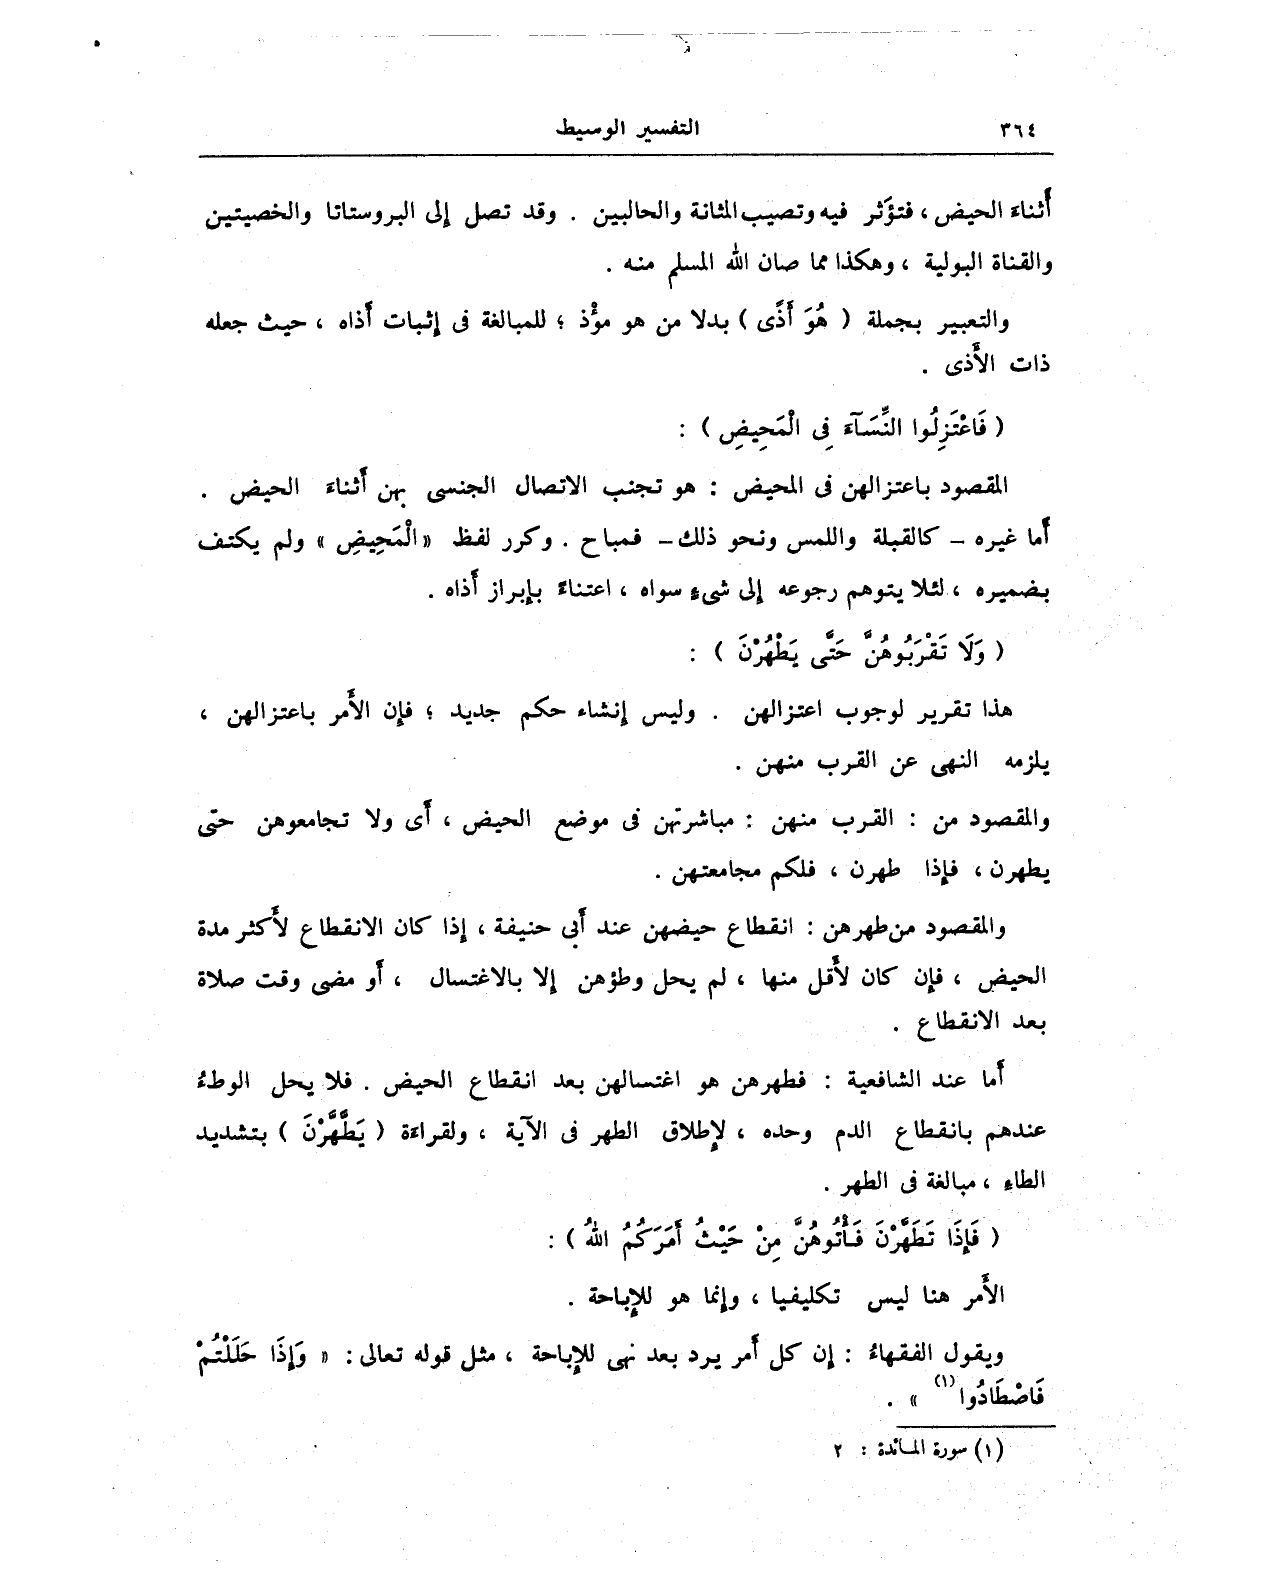 ٣٦٤
التفسير الوسيط
أثناء الحيض ، فتؤثر فيه وتصيب المثانة والحالبين . وقد تصل إلى البروستاتا والخصيتين
والقناة البولية ، وهكذا مما صان الله المسلم منه .
والتعبير بجملة ( هُوَ أَذًى ) بدلا من هو مؤْذ ؛ للمبالغة فى إثبات أذاه ، حيث جعله
ذات الأَذى .
( فَاعْتَزِلُوا النِّسَآءَ فِى الْمَحِيضِ ) :
المقصود باعتزالهن فى المحيض : هو تجنب الاتصال الجنسى بهن أثناء الحيض .
أما غيره - كالقبلة واللمس ونحو ذلك - فمباح . وكرر لفظ « الْمَحِيضِ » ولم يكتف
بضميره ، لئلا يتوهم رجوعه إلى شىء سواه ، اعتناءً بإبراز أذاه .
( وَلَا تَقْرَبُوهُنَّ حَتَّى يَطْهُرْنَ ) :
هذا تقرير لوجوب اعتزالهن . وليس إنشاء حكم جديد ؛ فإن الأَمر باعتزالهن ،
يلزمه النهى عن القرب منهن .
والمقصود من : القرب منهن : مباشرتهن فى موضع الحيض ، أى ولا تجامعوهن حتى
يطهرن ، فإذا طهرن ، فلكم مجامعتهن .
والمقصود من طهرهن : انقطاع حيضهن عند أبى حنيفة ، إذا كان الانقطاع لأَكثر مدة
الحيض ، فإن كان لأَقل منها ، لم يحل وطؤهن إلا بالاغتسال ، أو مضى وقت صلاة
بعد الانقطاع .
أما عند الشافعية : فطهرهن هو اغتسالهن بعد انقطاع الحيض . فلا يحل الوطءُ
عندهم بانقطاع الدم وحده ، لإطلاق الطهر فى الآية ، ولقراءة ( يَطَّهَّرْنَ ) بتشديد
الطاء ، مبالغة فى الطهر .
( فَإِذَا تَطَهَّرْنَ فَأْتُوهُنَّ مِنْ حَيْثُ أَمَرَكُمُ اللهُ ) :
الأَمر هنا ليس تكليفيا ، وإنما هو للإباحة .
ويقول الفقهاءُ : إن كل أمر يرد بعد نهى للإباحة ، مثل قوله تعالى : « وَإِذَا حَلَلْتُمْ
فَاصْطَادُوا (١) » .
(١) سورة المائدة : ٢